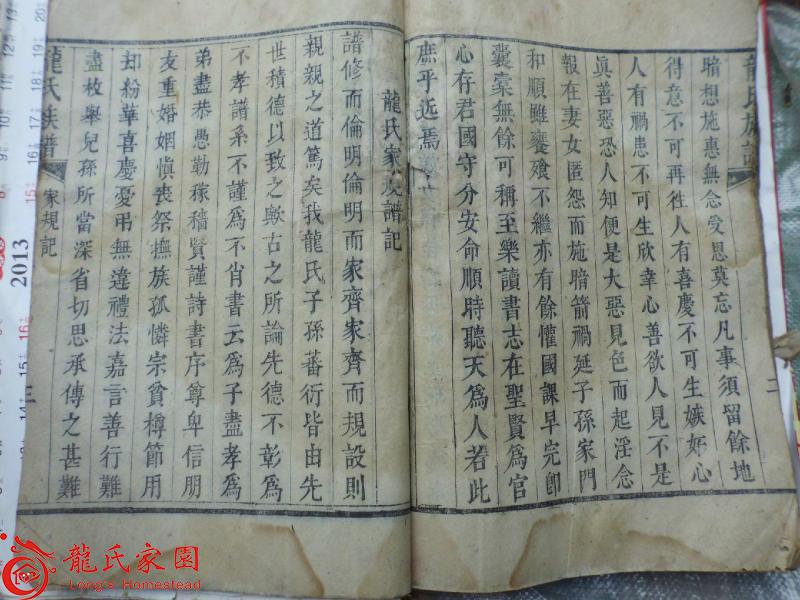 龍氏族譜
二
暗想施惠無念受恩莫忘凡事須留餘地
得意不可再徃人有喜慶不可生嫉妒心
人有禍患不可生欣幸心善欲人見不是
眞善惡恐人知便是大惡見色而起淫念
報在妻女匿怨而施暗箭禍延子孫家門
和順雖饔飧不繼亦有餘懽國課早完卽
囊橐無餘可稱至樂讀書志在聖賢爲官
心存君國守分安命順時聽天爲人若此
庶乎近焉
龍氏家族譜記
譜修而倫明倫明而家齊家齊而規設則
親親之道篤矣我龍氏子孫蕃衍皆由先
世積德以致之歟古之所論先德不彰爲
不孝譜系不謹爲不肖書云爲子盡孝爲
弟盡恭愚勤稼穡賢謹詩書序尊卑信朋
友重婚姻愼喪祭撫族孤憐宗貧樽節用
却紛華喜慶憂弔無違禮法嘉言善行難
盡枚舉兒孫所當深省切思承傳之甚難
龍氏族譜
家規記
三
2013
龍氏家園
Long's Homestead